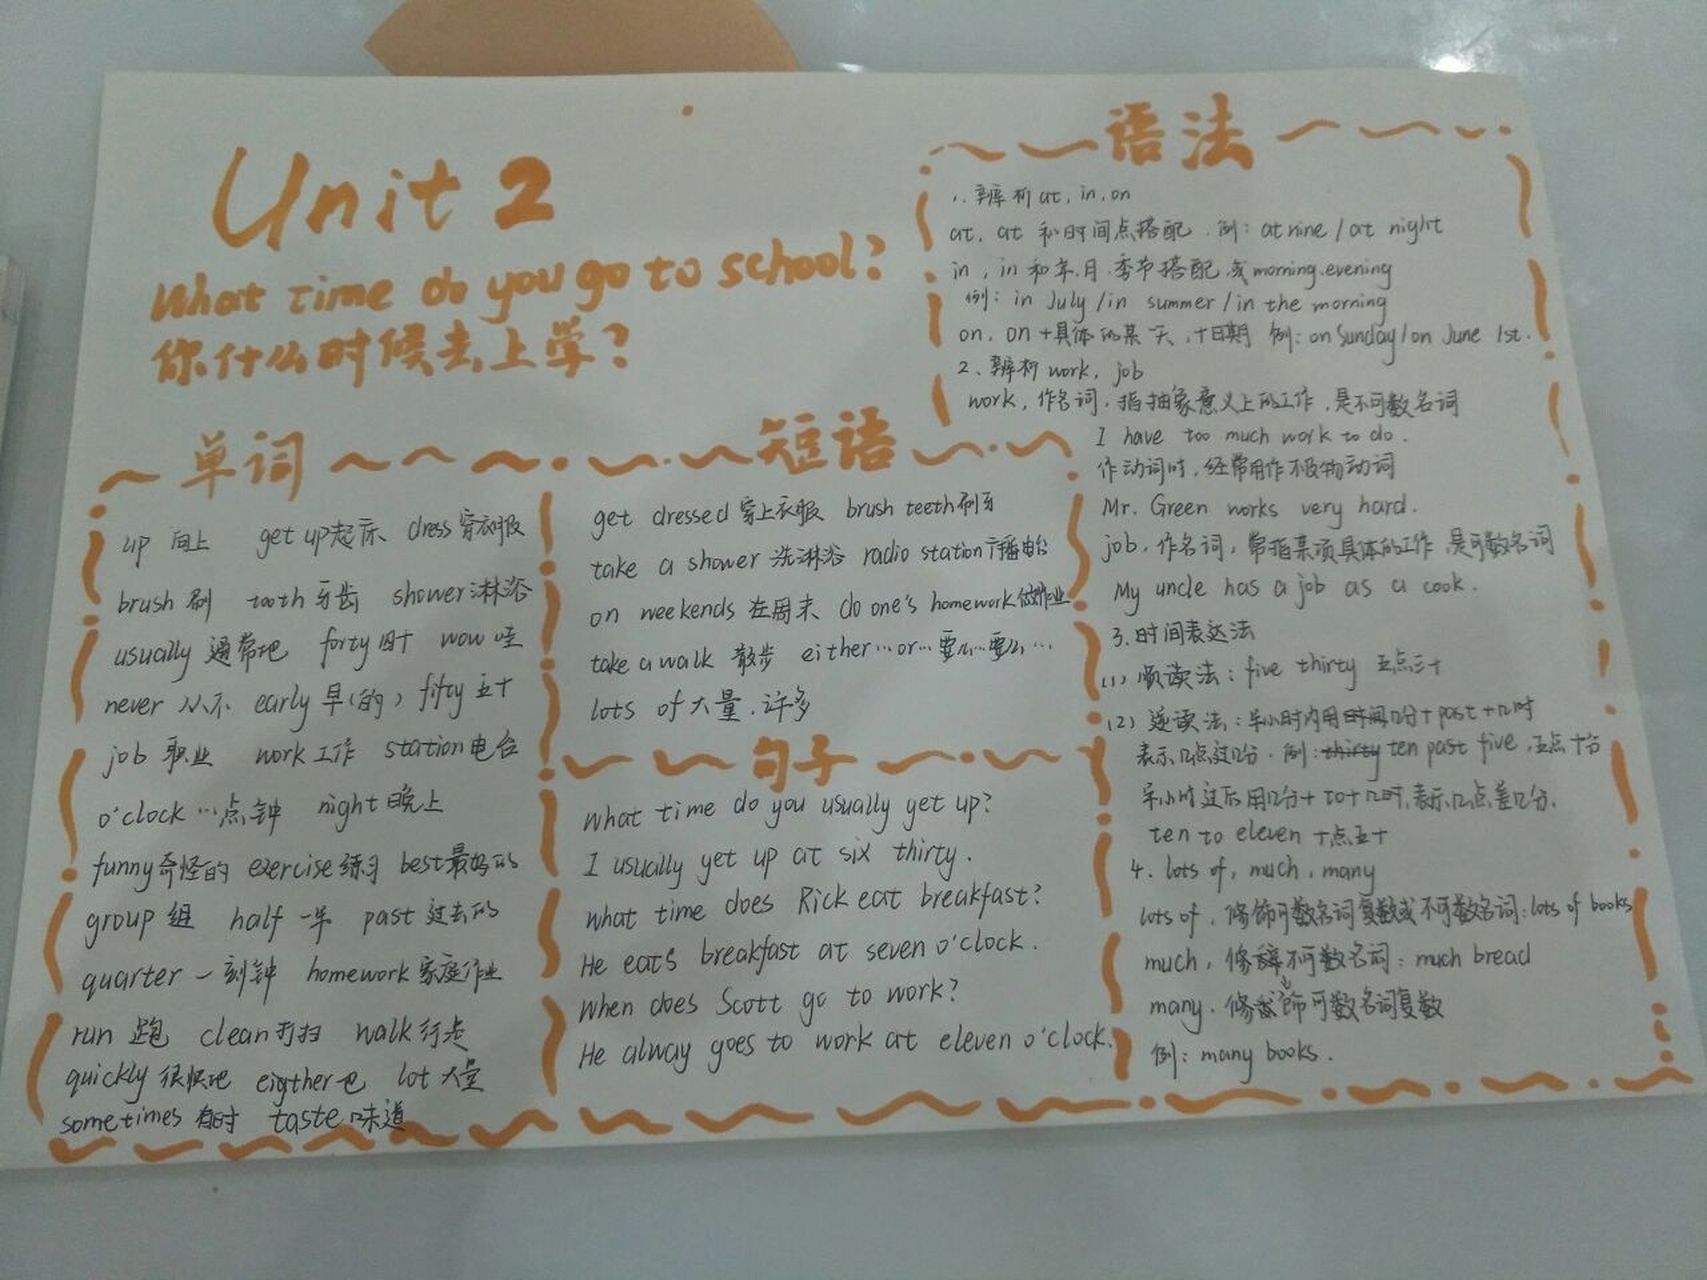 Unit 2
What time do you go to school?
你什么时候去上学?
单词
up 向上 get up起床 dress 穿衣服
brush 刷 tooth 牙齿 shower淋浴
usually 通常地 forty 四十 wow 哇
never 从不 early 早(的) fifty 五十
job 职业 work 工作 station电台
o'clock …点钟 night 晚上
funny奇怪的 exercise练习 best最好的
group 组 half 一半 past 过去的
quarter 一刻钟 homework 家庭作业
run 跑 clean打扫 walk行走
quickly 很快地 eigther也 lot 大量
sometimes 有时 taste 味道
短语
get dressed 穿上衣服 brush teeth刷牙
take a shower 洗淋浴 radio station广播电台
on weekends 在周末 do one's homework做作业
take a walk 散步 either…or…要么…要么…
lots of 大量,许多
句子
What time do you usually get up?
I usually get up at six thirty.
What time does Rick eat breakfast?
He eats breakfast at seven o'clock.
When does Scott go to work?
He alway goes to work at eleven o'clock.
语法
1. 辨析at, in, on
at, at 和时间点搭配.例: at nine / at night
in, in 和年.月.季节搭配,或morning.evening
例: in July / in summer / in the morning
on, on +具体的某一天,十日期 例: on Sunday / on June 1st.
2、辨析 work, job
work, 作名词,指抽象意义上的工作,是不可数名词
I have too much work to do.
作动词时,经常用作不及物动词
Mr. Green works very hard.
job, 作名词, 常指某项具体的工作,是可数名词
My uncle has a job as a cook.
3.时间表达法
(1) 顺读法: five thirty 五点三十
(2) 逆读法: 半小时内用时间几分+past+几时
表示几点过几分. 例: thirty ten past five, 五点十分
半小时过后用几分+to+几时,表示几点差几分.
ten to eleven 十点五十
4. lots of, much, many
lots of, 修饰可数名词复数或不可数名词: lots of books
much, 修辞不可数名词: much bread
many. 修饰可数名词复数
例: many books.